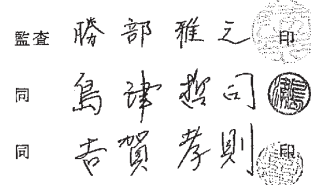 監査 勝部雅之 印
同 島津哲司
同 古賀孝則 印